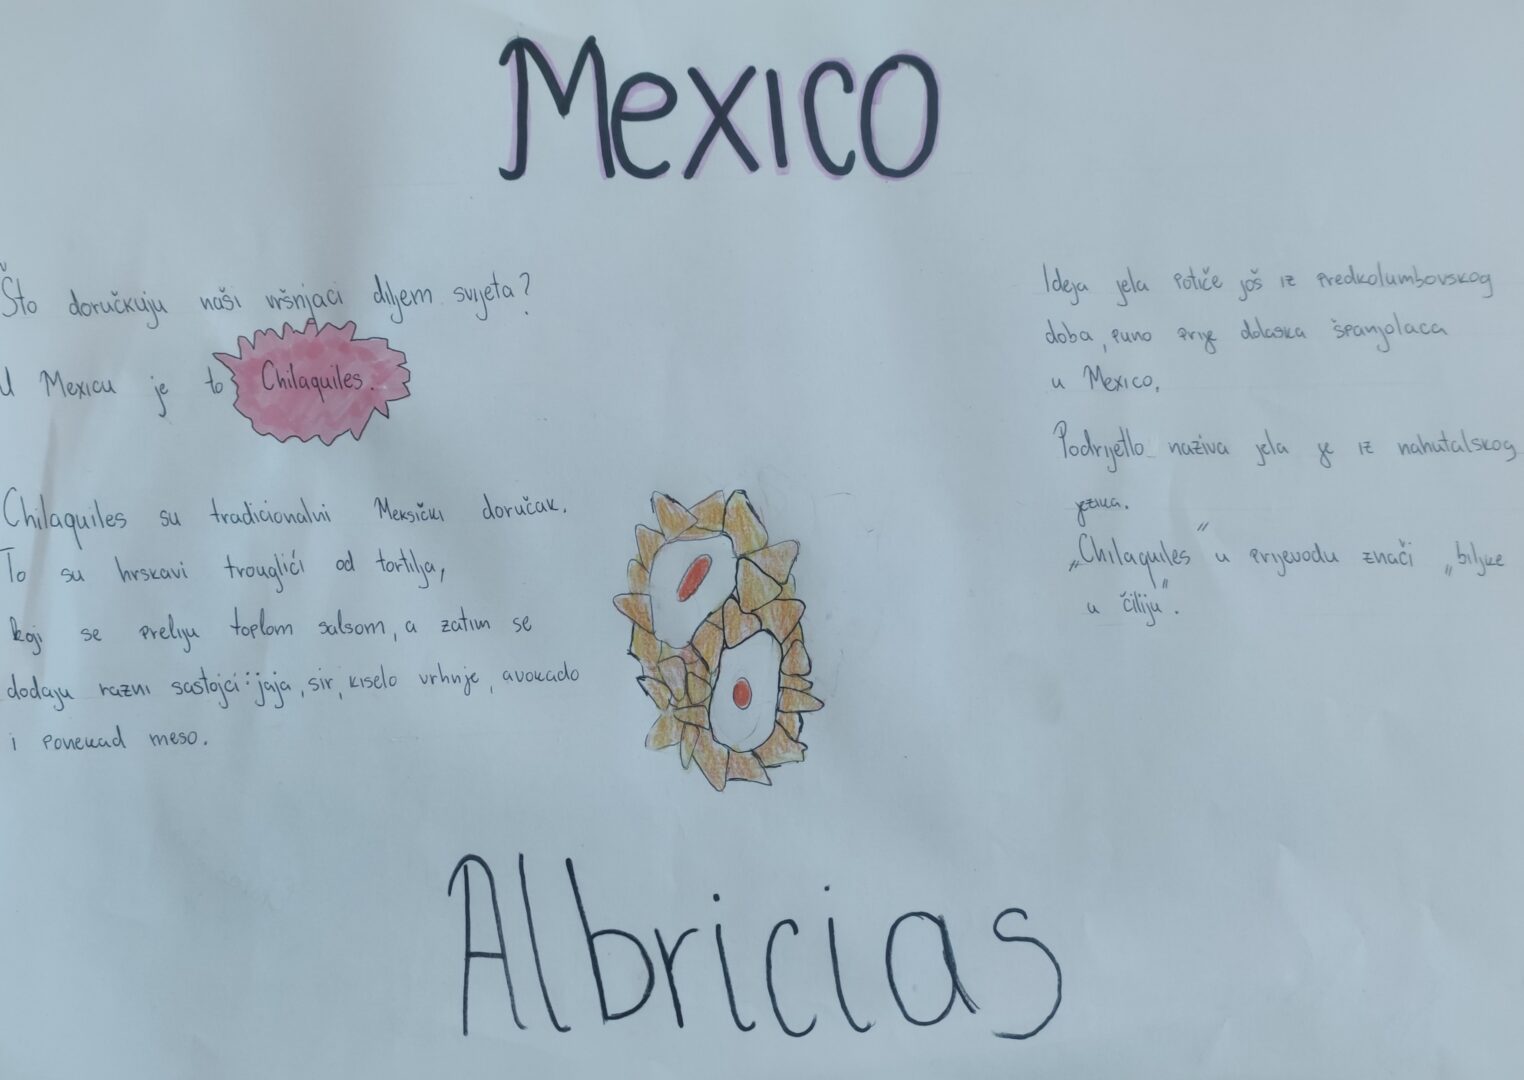 Mexico
Što doručkuju naši vršnjaci diljem svijeta?
U Mexicu je to Chilaquiles.
Chilaquiles su tradicionalni Meksički doručak.
To su hrskavi trouglići od tortilja,
koji se preliju toplom salsom, a zatim se
dodaju razni sastojci: jaja, sir, kiselo vrhnje, avokado
i ponekad meso.
Ideja jela potiče još iz predkolumbovskog
doba, puno prije dolaska španjolaca
u Mexico.
Podrijetlo naziva jela je iz nahutalskog
jezika.
„Chilaquiles" u prijevodu znači „biljke
u čiliju".
Albricias